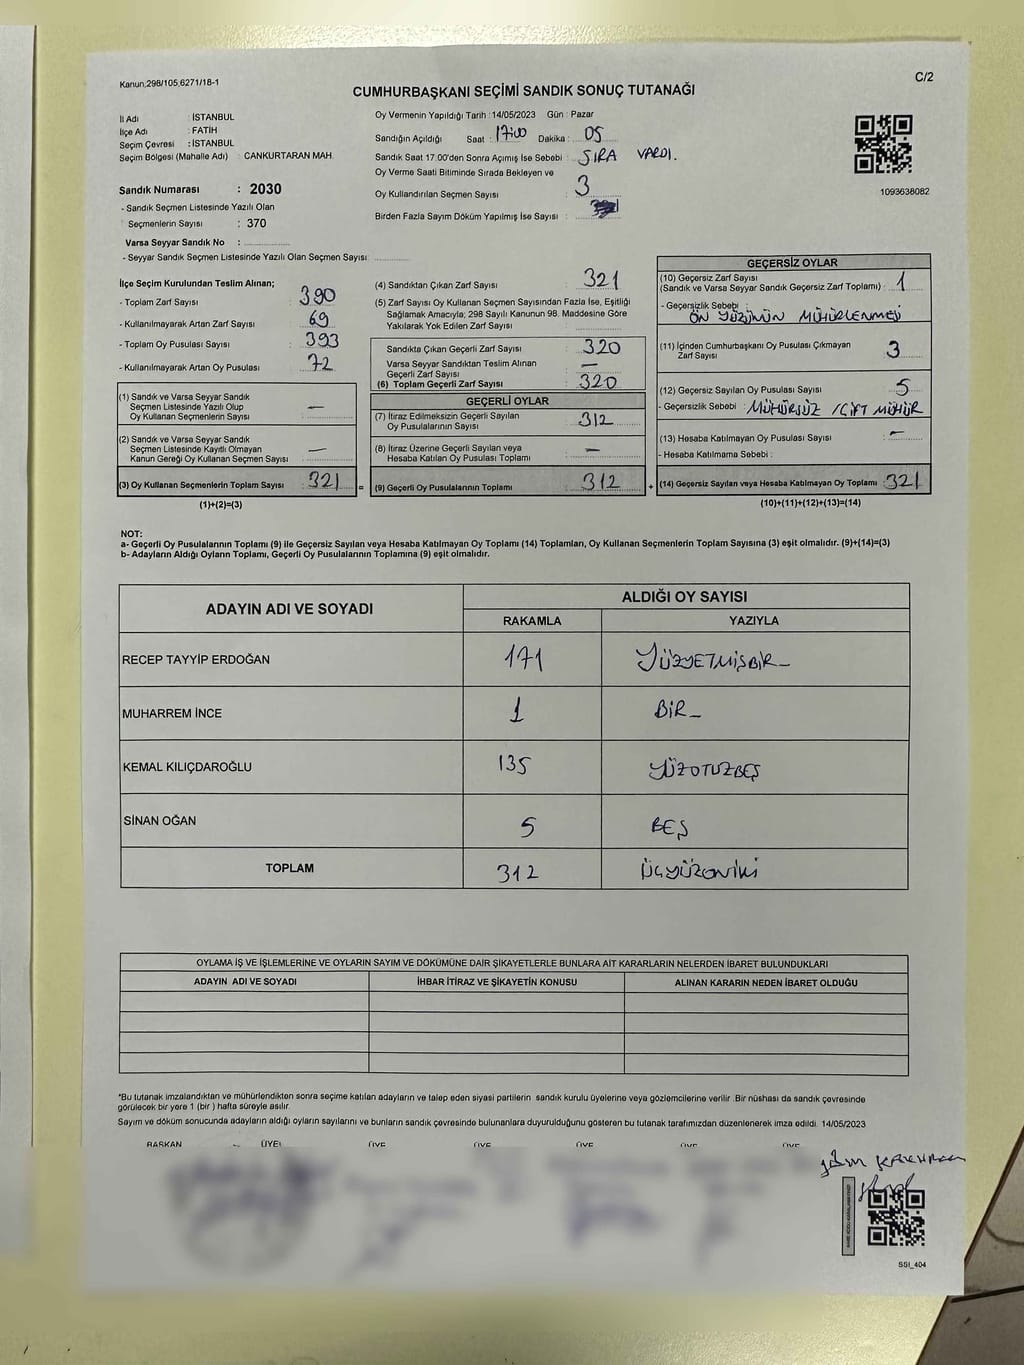 Kanun;298/105;6271/18-1
C/2
CUMHURBAŞKANI SEÇİMİ SANDIK SONUÇ TUTANAĞI
İl Adı : İSTANBUL
İlçe Adı : FATİH
Seçim Çevresi : İSTANBUL
Seçim Bölgesi (Mahalle Adı) CANKURTARAN MAH.
Sandık Numarası : 2030
- Sandık Seçmen Listesinde Yazılı Olan
Seçmenlerin Sayısı : 370
Varsa Seyyar Sandık No :
- Seyyar Sandık Seçmen Listesinde Yazılı Olan Seçmen Sayısı:
Oy Vermenin Yapıldığı Tarih :14/05/2023 Gün : Pazar
Sandığın Açıldığı Saat : 17:00 Dakika : 05
Sandık Saat 17.00'den Sonra Açımış İse Sebebi : SIRA VARDI.
Oy Verme Saati Bitiminde Sırada Bekleyen ve
Oy Kullandırılan Seçmen Sayısı : 3
Birden Fazla Sayım Döküm Yapılmış İse Sayısı :
1093638082
İlçe Seçim Kurulundan Teslim Alınan;
- Toplam Zarf Sayısı : 390
- Kullanılmayarak Artan Zarf Sayısı : 69
- Toplam Oy Pusulası Sayısı : 393
- Kullanılmayarak Artan Oy Pusulası : 72
(1) Sandık ve Varsa Seyyar Sandık
Seçmen Listesinde Yazılı Olup
Oy Kullanan Seçmenlerin Sayısı : —
(2) Sandık ve Varsa Seyyar Sandık
Seçmen Listesinde Kayıtlı Olmayan
Kanun Gereği Oy Kullanan Seçmen Sayısı : —
(3) Oy Kullanan Seçmenlerin Toplam Sayısı : 321
(1)+(2)=(3)
(4) Sandıktan Çıkan Zarf Sayısı : 321
(5) Zarf Sayısı Oy Kullanan Seçmen Sayısından Fazla İse, Eşitliği
Sağlamak Amacıyla; 298 Sayılı Kanunun 98. Maddesine Göre
Yakılarak Yok Edilen Zarf Sayısı :
Sandıkta Çıkan Geçerli Zarf Sayısı : 320
Varsa Seyyar Sandıktan Teslim Alınan
Geçerli Zarf Sayısı : —
(6) Toplam Geçerli Zarf Sayısı : 320
GEÇERLİ OYLAR
(7) İtiraz Edilmeksizin Geçerli Sayılan
Oy Pusulalarının Sayısı : 312
(8) İtiraz Üzerine Geçerli Sayılan veya
Hesaba Katılan Oy Pusulası Toplamı : —
= (9) Geçerli Oy Pusulalarının Toplamı : 312
GEÇERSİZ OYLAR
(10) Geçersiz Zarf Sayısı
(Sandık ve Varsa Seyyar Sandık Geçersiz Zarf Toplamı) : 1
- Geçersizlik Sebebi :
ÖN YÜZÜNÜN MÜHÜRLENMESİ
(11) İçinden Cumhurbaşkanı Oy Pusulası Çıkmayan
Zarf Sayısı 3
(12) Geçersiz Sayılan Oy Pusulası Sayısı : 5
- Geçersizlik Sebebi : MÜHÜRSÜZ / ÇİFT MÜHÜR
(13) Hesaba Katılmayan Oy Pusulası Sayısı : —
- Hesaba Katılmama Sebebi :
+ (14) Geçersiz Sayılan veya Hesaba Katılmayan Oy Toplamı : 321
(10)+(11)+(12)+(13)=(14)
NOT:
a- Geçerli Oy Pusulalarının Toplamı (9) ile Geçersiz Sayılan veya Hesaba Katılmayan Oy Toplamı (14) Toplamları, Oy Kullanan Seçmenlerin Toplam Sayısına (3) eşit olmalıdır. (9)+(14)=(3)
b- Adayların Aldığı Oyların Toplamı, Geçerli Oy Pusulalarının Toplamına (9) eşit olmalıdır.
ADAYIN ADI VE SOYADI
ALDIĞI OY SAYISI
RAKAMLA YAZIYLA
RECEP TAYYİP ERDOĞAN 171 YÜZYETMİŞBİR_
MUHARREM İNCE 1 BİR_
KEMAL KILIÇDAROĞLU 135 YÜZOTUZBEŞ
SİNAN OĞAN 5 BEŞ
TOPLAM 312 ÜÇYÜZONİKİ
OYLAMA İŞ VE İŞLEMLERİNE VE OYLARIN SAYIM VE DÖKÜMÜNE DAİR ŞİKAYETLERLE BUNLARA AİT KARARLARIN NELERDEN İBARET BULUNDUKLARI
ADAYIN ADI VE SOYADI İHBAR İTİRAZ VE ŞİKAYETİN KONUSU ALINAN KARARIN NEDEN İBARET OLDUĞU
*Bu tutanak imzalandıktan ve mühürlendikten sonra seçime katılan adayların ve talep eden siyasi partilerin sandık kurulu üyelerine veya gözlemcilerine verilir .Bir nüshası da sandık çevresinde
görülecek bir yere 1 (bir ) hafta süreyle asılır.
Sayım ve döküm sonucunda adayların aldığı oyların sayılarını ve bunların sandık çevresinde bulunanlara duyurulduğunu gösteren bu tutanak tarafımızdan düzenlenerek imza edildi. 14/05/2023
BAŞKAN ÜYE ÜYE ÜYE ÜYE ÜYE ÜYE
SSI_404